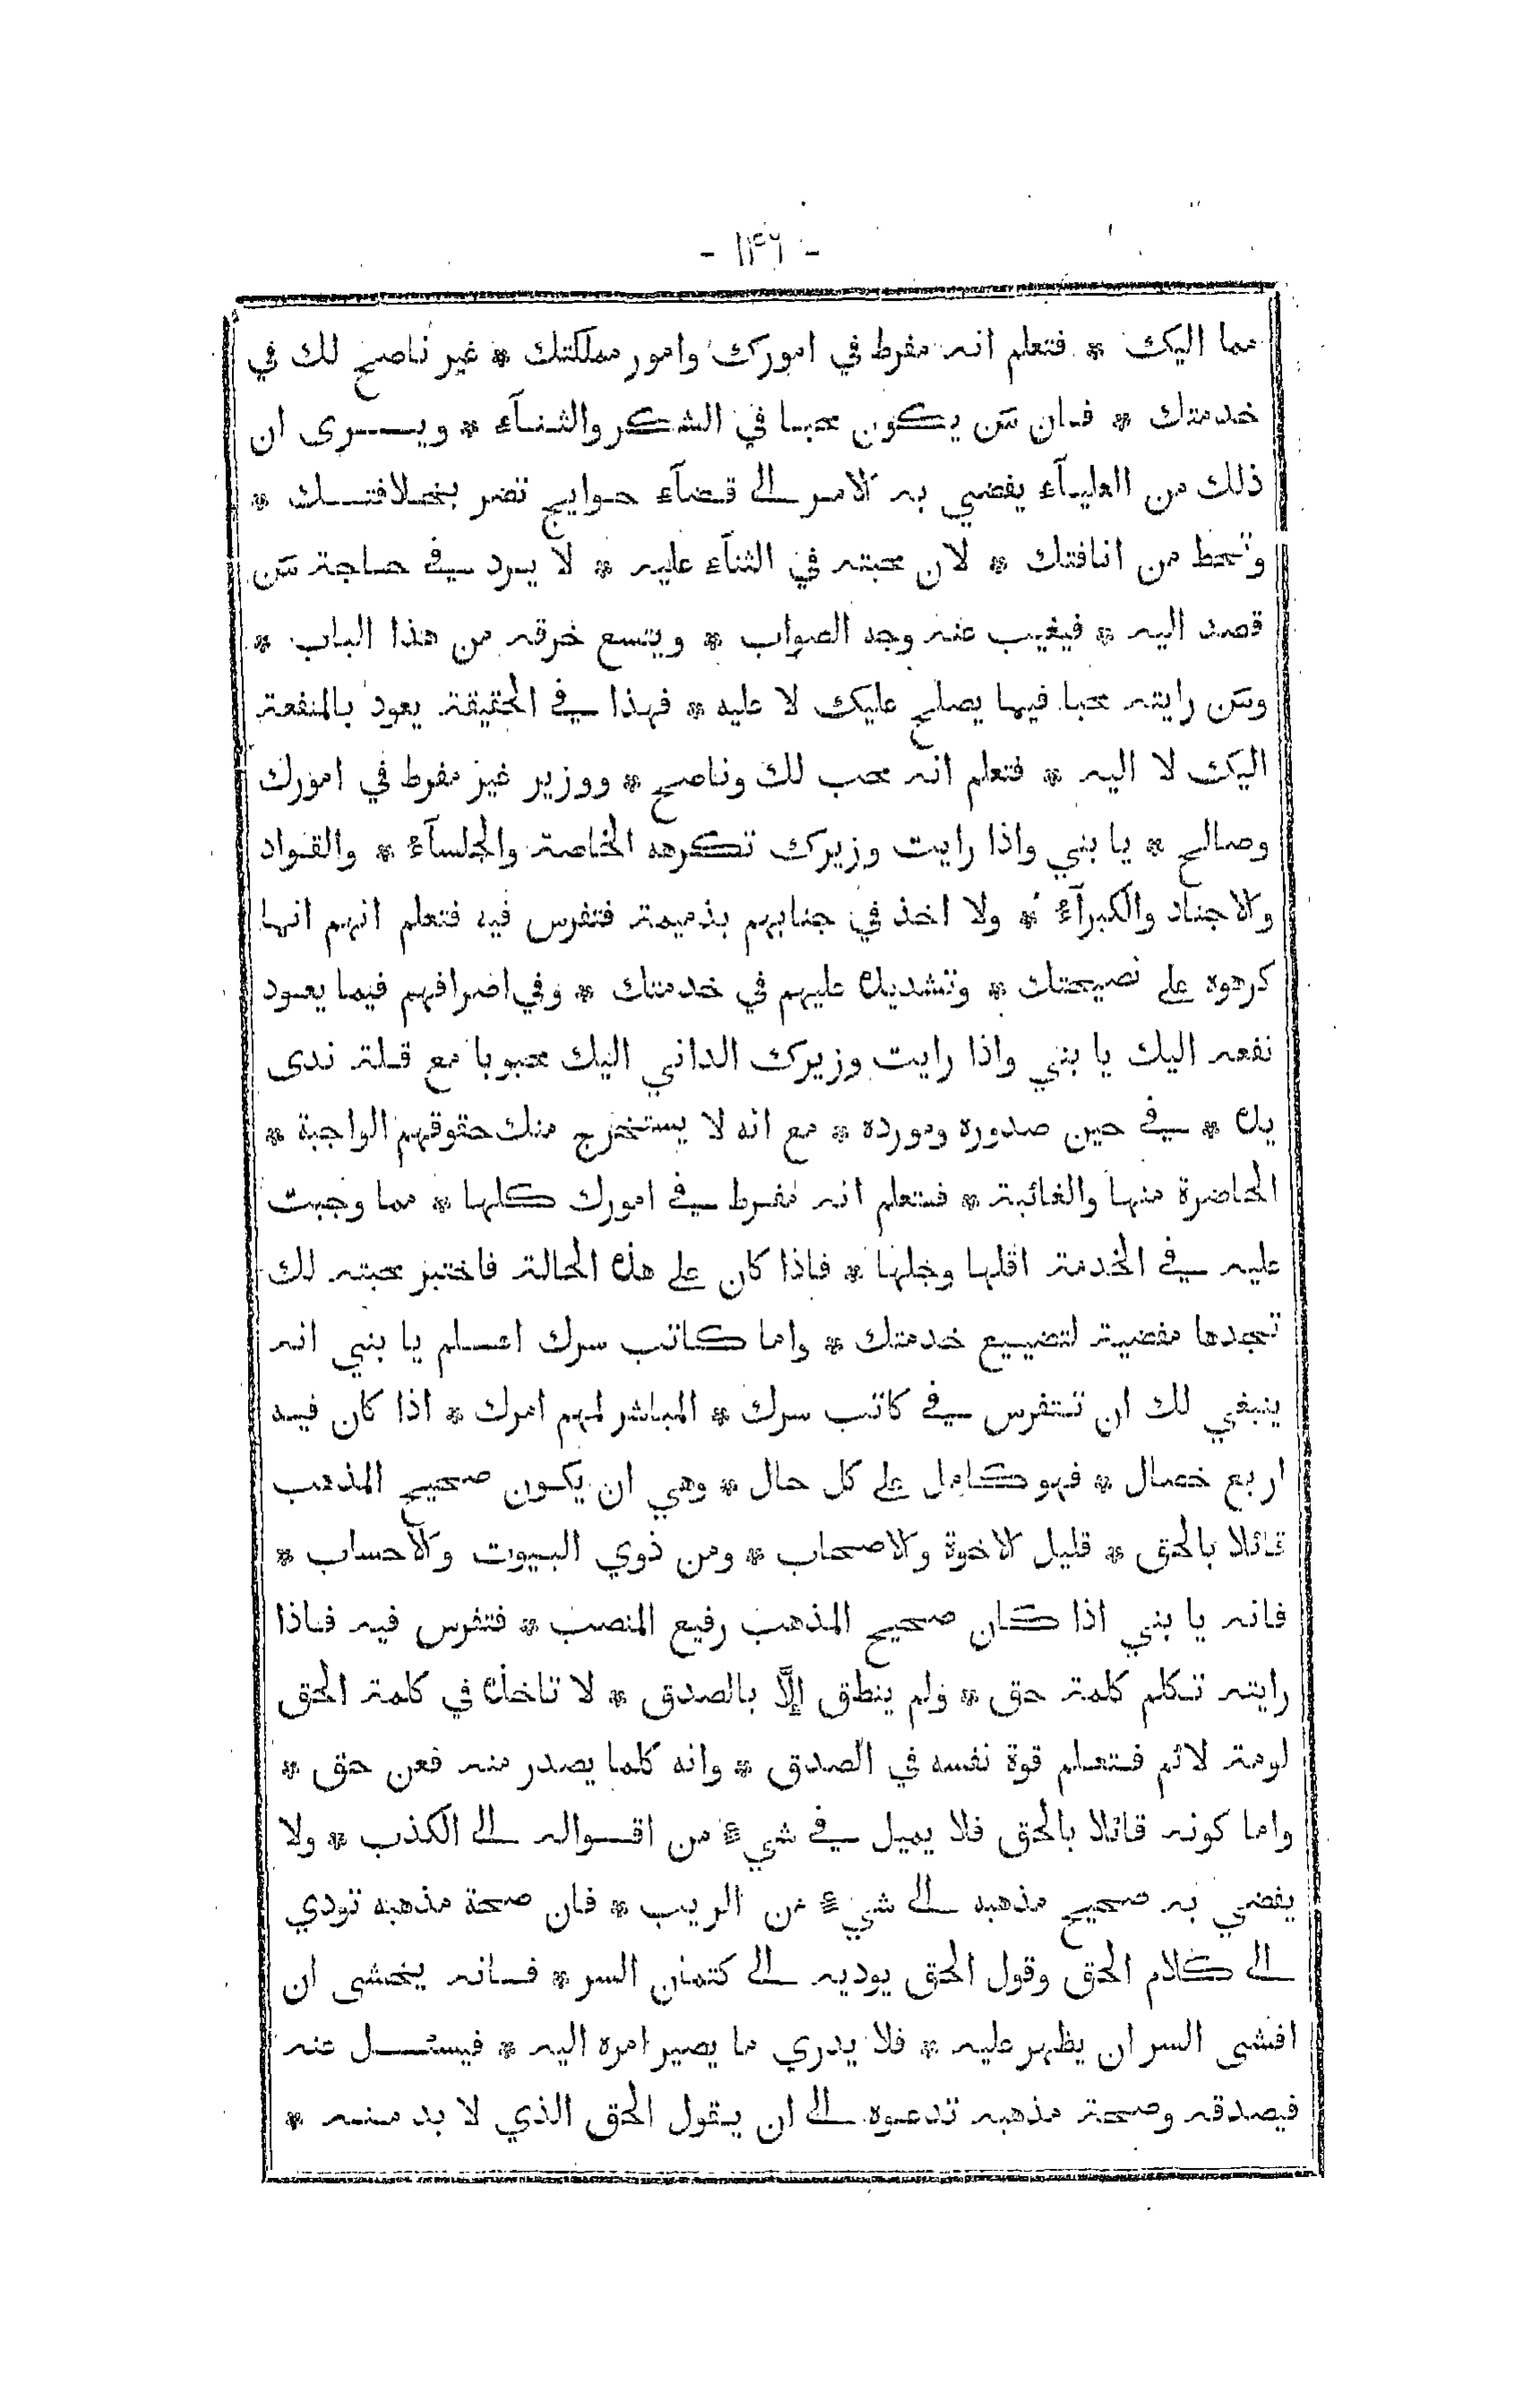 - ١٤٦ -
مما اليك * فتعلم انه مفرط في امورك وامور مملكتك * غير ناصح لك في
خدمتك * فان مَن يكون محبا في الشكر والثنآء * ويرى ان
ذلك من العليآء يفضي به الامر الى قضآء حوايج تضر بخلافتك *
وتحط من انافتك * لان محبته في الثنآء عليه * لا يرد في حاجة مَن
قصد اليه * فيغيب عنه وجه الصواب * ويتسع خرقه من هذا الباب *
ومَن رايته محبا فيما يصلح عليك لا عليه * فهذا في الحقيقة يعود بالمنفعة
اليك لا اليه * فتعلم انه محب لك وناصح * ووزير غير مفرط في امورك
وصالح * يا بني واذا رايت وزيرك تكرهه الخاصة والجلسآء * والقواد
والاجناد والكبرآء * ولا اخذ في جنابهم بذميمة فتفرس فيه فتعلم انهم انما
كرهوه على نصيحتك * وتشديده عليهم في خدمتك * وفي اضرافهم فيما يعود
نفعه اليك يا بني واذا رايت وزيرك الداني اليك محبوبا مع قلة ندى
يده * في حين صدوره ومورده * مع انه لا يستخرج منك حقوقهم الواجبة *
الحاضرة منها والغائبة * فتعلم انه مفرط في امورك كلها * مما وجبت
عليه في الخدمة اقلها وجلها * فاذا كان على هذه الحالة فاختبر محبته لك
تجدها مفضية لتضييع خدمتك * واما كاتب سرك اعلم يا بني انه
ينبغي لك ان تتفرس في كاتب سرك * المباشر لمهم امرك * اذا كان فيه
اربع خصال * فهو كامل على كل حال * وهي ان يكون صحيح المذهب
قائلا بالحق * قليل الاخوة والاصحاب * ومن ذوي البيوت والاحساب *
فانه يا بني اذا كان صحيح المذهب رفيع المنصب * فتفرس فيه فاذا
رايته تكلم كلمة حق * ولم ينطق إلَّا بالصدق * لا تاخذه في كلمة الحق
لومة لائم فتعلم قوة نفسه في الصدق * وانه كلما يصدر منه فعن حق *
واما كونه قائلا بالحق فلا يميل في شيء من اقواله الى الكذب * ولا
يفضي به صحيح مذهبه الى شيء من الريب * فان صحة مذهبه تودي
الى كلام الحق وقول الحق يوديه الى كتمان السر * فانه يخشى ان
افشى السر ان يظهر عليه * فلا يدري ما يصير امره اليه * فيسئل عنه
فيصدقه وصحة مذهبه تدعوه الى ان يقول الحق الذي لا بد منه *